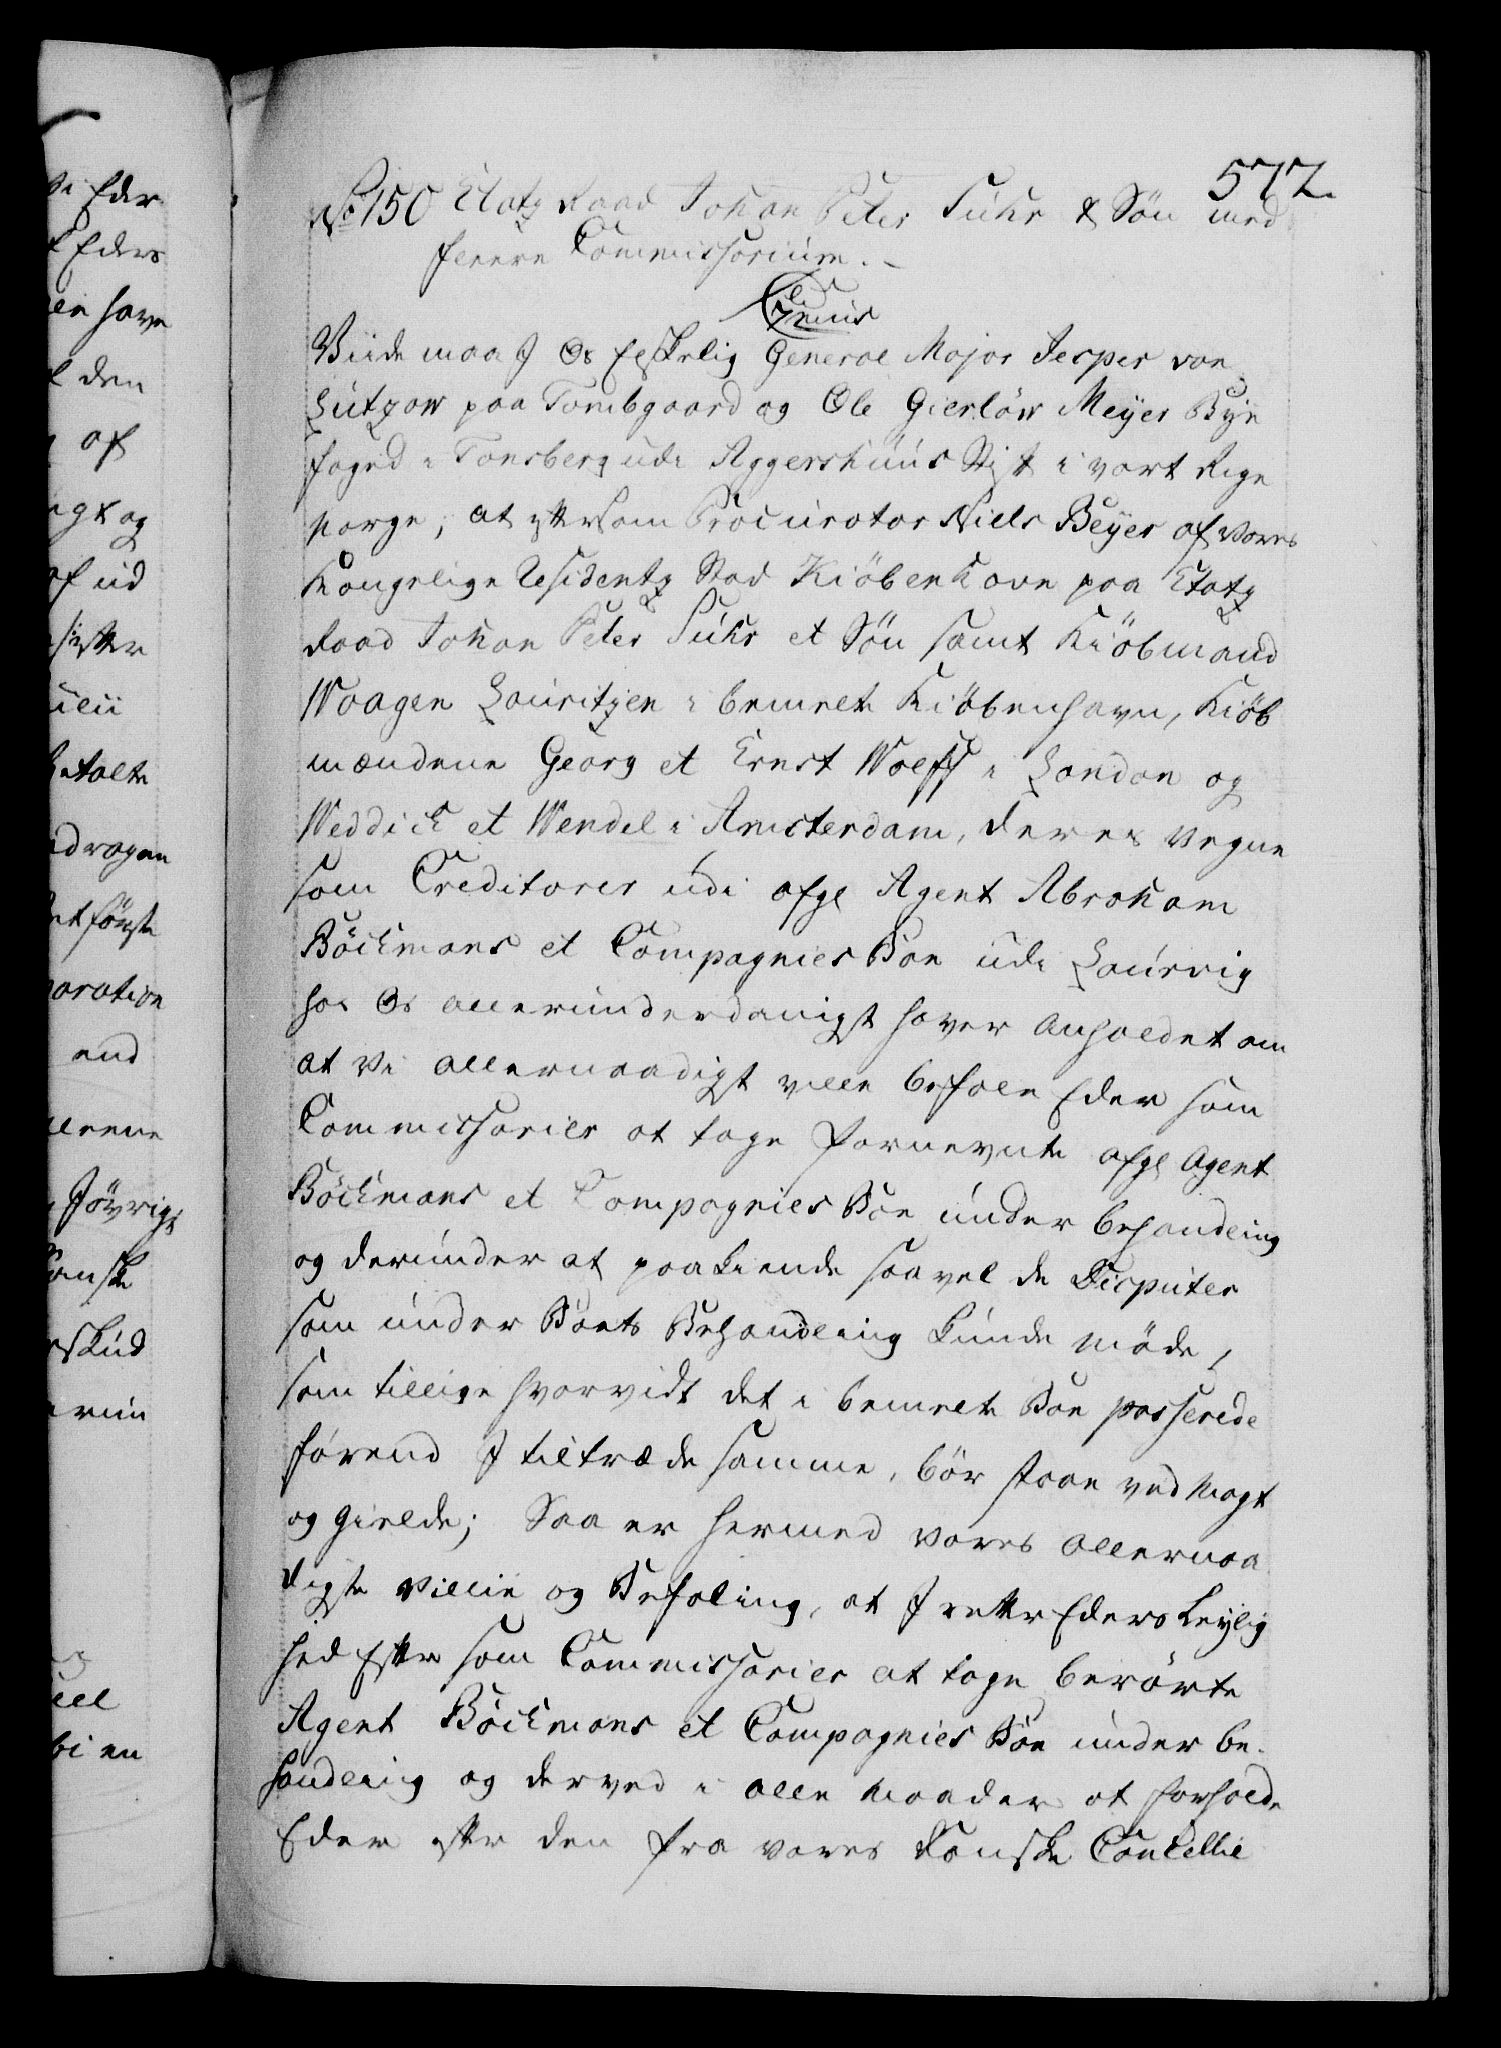 572.
No 150 Etatz Raad Johan Peter Suhr & Søn med
fleere Commissorium.
Viide maa I Os Elskelig General Major Jesper von
Lutzow paa Tombgaard og Ole Gierløw Meyer Bye
foged i Tonsberg udi Aggershuus Stift i vort Rige
Norge, at eftersom Procurator Niels Beyer af vores
Kongelige Residentz Stad Kiöbenhavn paa Etatz
Raad Johan Peter Suhr et Søn samt Kiöbmand
Waagen Lauritzen i bemelte Kiöbenhavn, Kiöb
mændene Georg et Ernst Wolff i London og
Weddick et Wendel i Amsterdam, deres Vegne
som Creditorer udi afgl Agent Abraham
Böckmans et Compagnies Boe udi Laurvig
hos Os allerunderdanigst haver anholdet om
at Vi allernaadigst ville befale Eder som
Commissarier at tage fornevnte afgl Agent
Böckmans et Compagnies Boe under behandling
og derunder at paakiende saavel de Disputer
som under Boets Behandling kunde møde,
som tillige hvorvidt det i bemelte Boe passerede
förend I tiltræde samme, bör staae ved Magt
og gielde; Saa er hermed vores allernaa
digste Villie og Befaling, at I retter Eders Leylig
hed efter som Commissarier at tage berörte
Agent Böckmans et Compagnies Boe under be-
handling og derved i alle Maader at forholde
Eder efter den fra vores Danske Cancellie